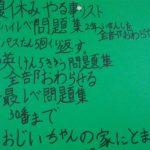 夏休みやる事リスト
ハイレベ問題集2年ふくしゅうを全部おわらせ
パスたん5回くり返す。
英けん5きゅう問題集
全部おわらせる
最レベ問題集
30番まで
おじいちゃんの家にとま